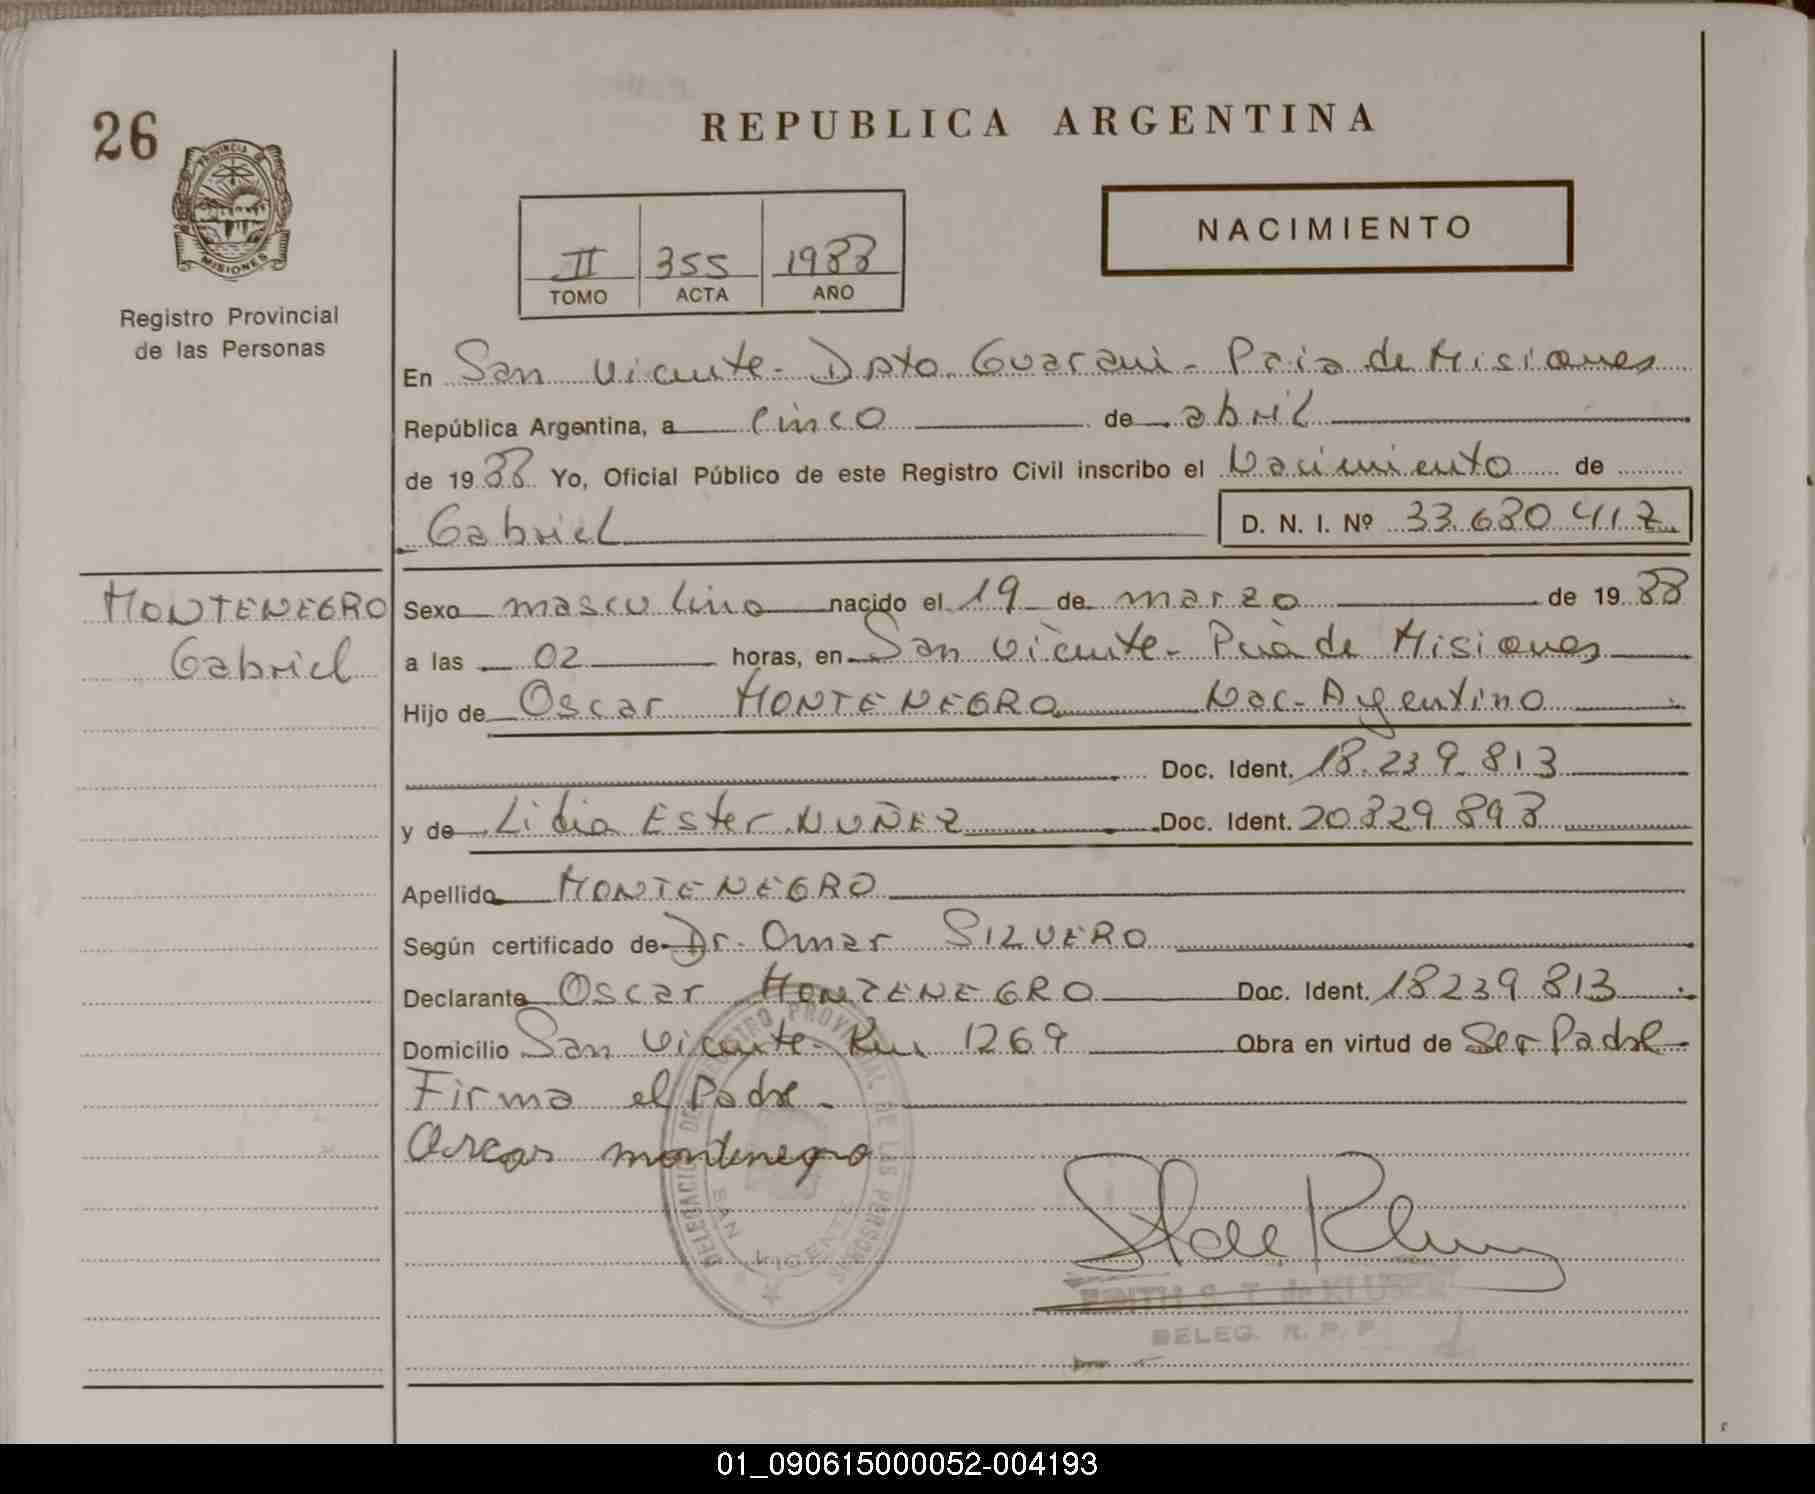 26
PROVINCIA DE
MISIONES
Registro Provincial
de las Personas
REPUBLICA ARGENTINA
II 355 1988
TOMO ACTA AÑO
NACIMIENTO
En San Vicente - Dpto. Guarani - Pcia de Misiones
República Argentina, a cinco de abril
de 1988 Yo, Oficial Público de este Registro Civil inscribo el Nacimiento de
Gabriel D. N. I. Nº 33.680 417
MONTENEGRO
Gabriel
Sexo masculino nacido el 19 de marzo de 1988
a las 02 horas, en San Vicente - Pcia de Misiones
Hijo de Oscar MONTENEGRO Nac. Argentino
Doc. Ident. 18.239.813
y de Lidia Ester NUÑEZ Doc. Ident. 20.829.898
Apellido MONTENEGRO
Según certificado de Dr. Omar SILVERO
Declarante Oscar MONTENEGRO Doc. Ident. 18239.813
Domicilio San Vicente - Km 1269 Obra en virtud de Ser Padre
Firma el Padre -
montenegro
DELEGACION DEL REGISTRO PROVINCIAL DE LAS PERSONAS
SAN VICENTE
EDITH S. T. de KLUSENER
DELEG. R. P. P.
01_090615000052-004193